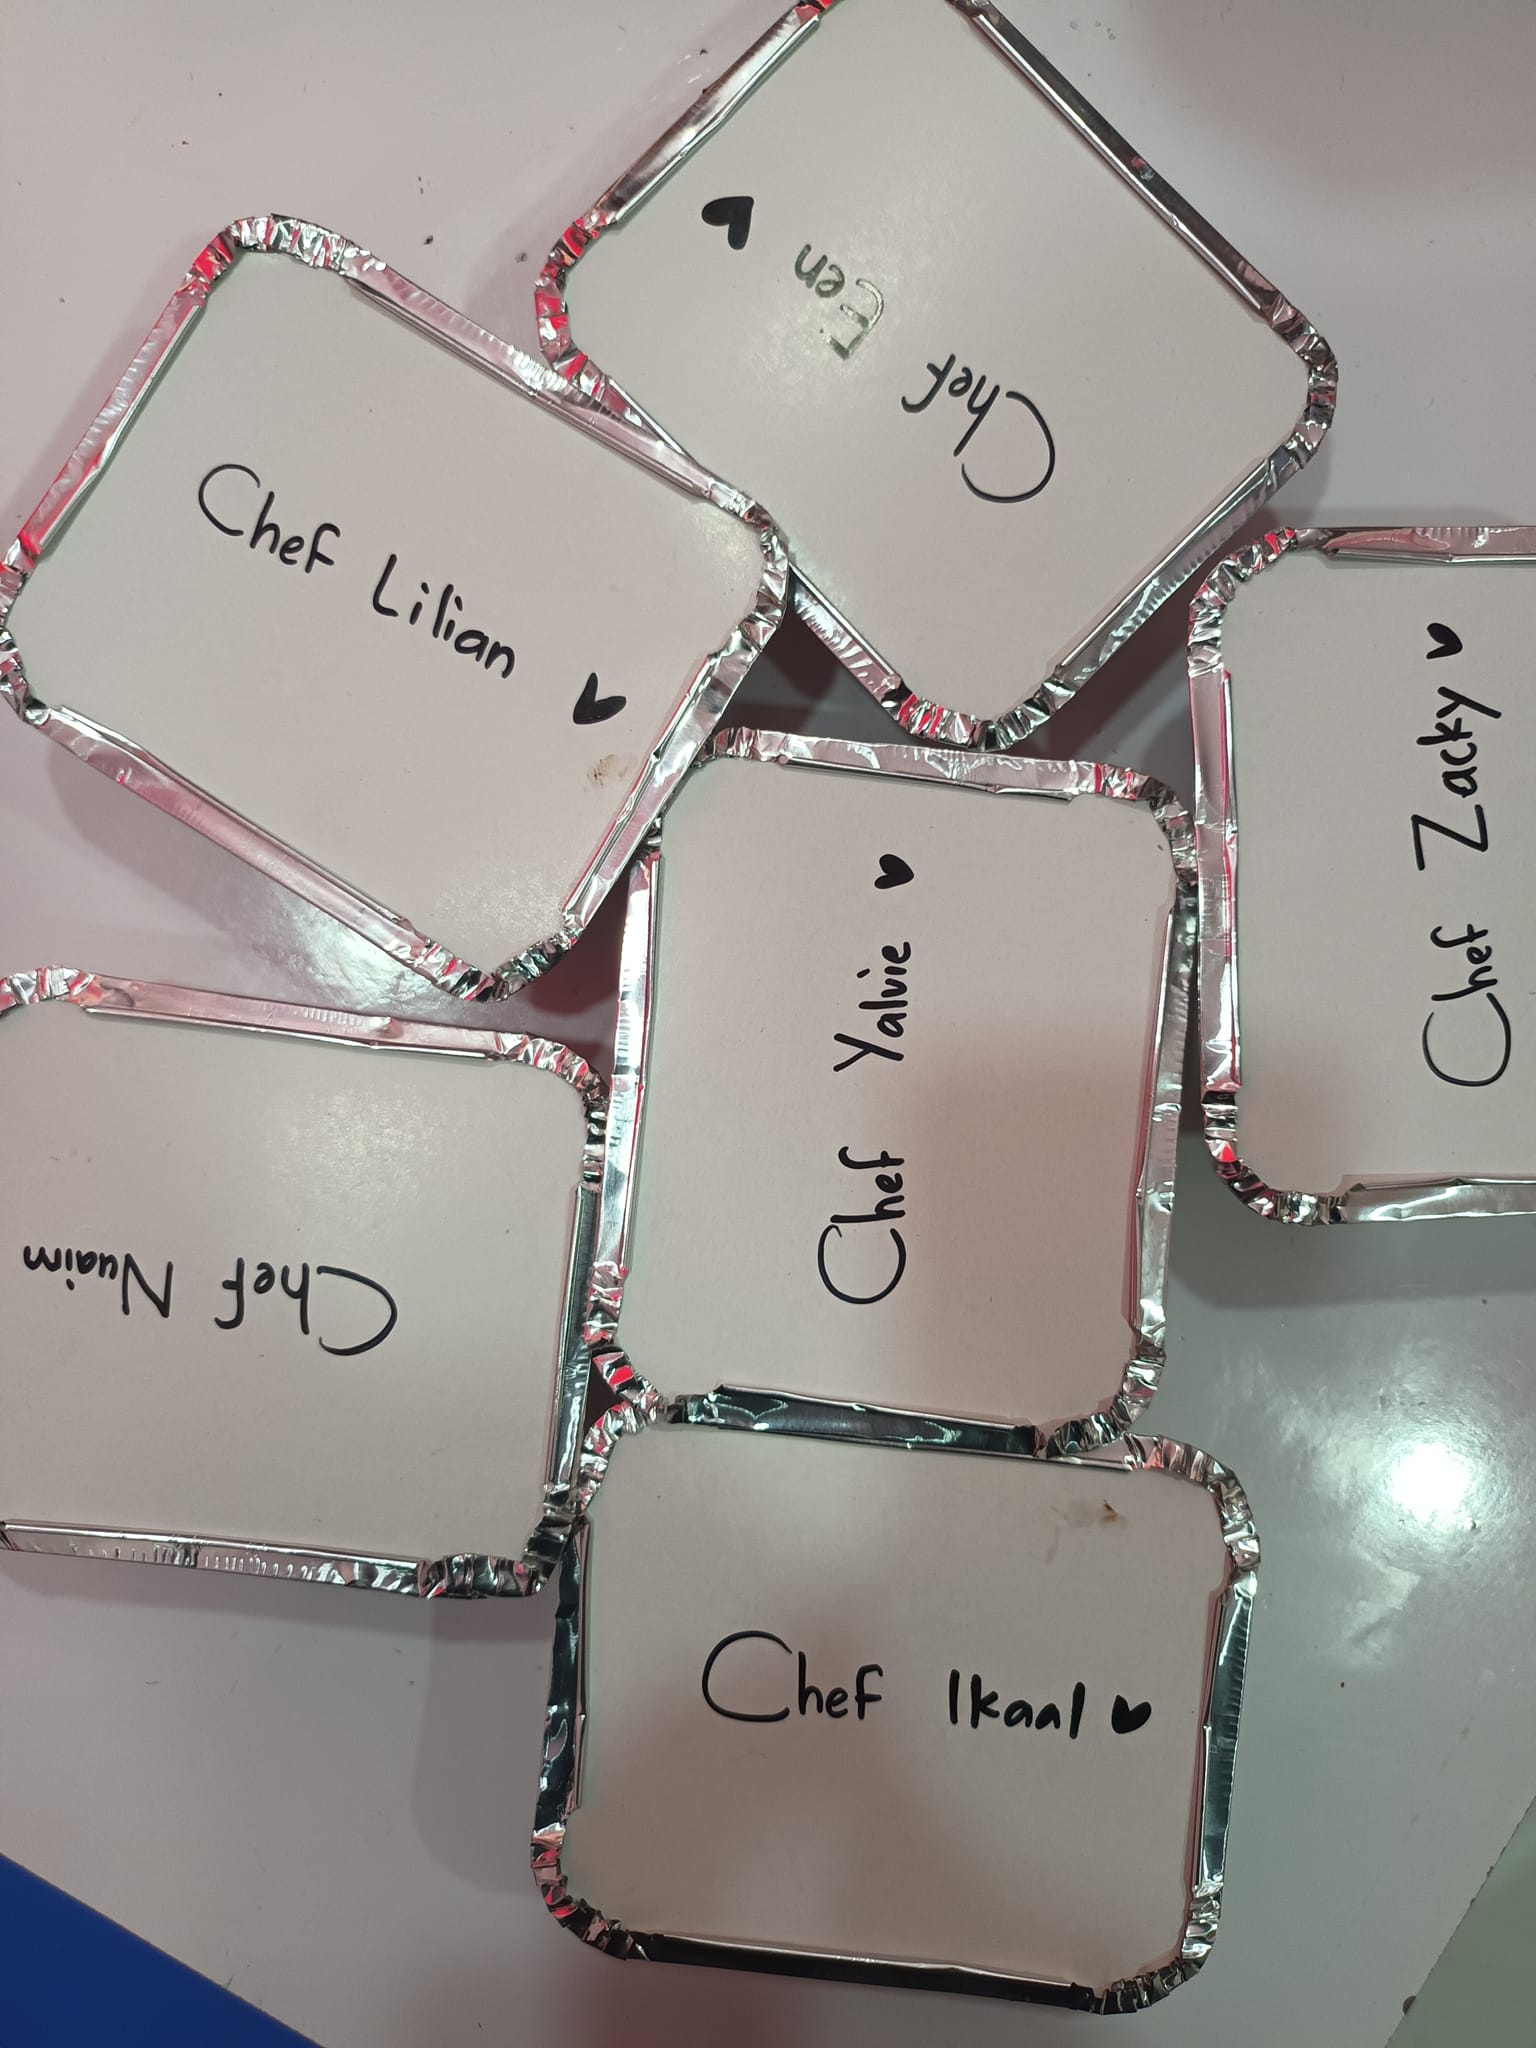 Chef Een
Chef Lilian
Chef Zacky
Chef Yalvie
Chef Nuaim
Chef Ikaal